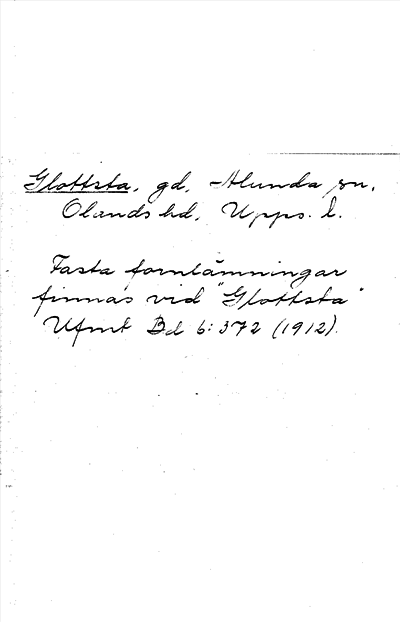 Glottsta, gd, Alunda sn,
Olands hd, Upps. l.
Fasta fornlämningar
finnas vid "Glottsta"
Ufmt Bd 6: 372 (1912).